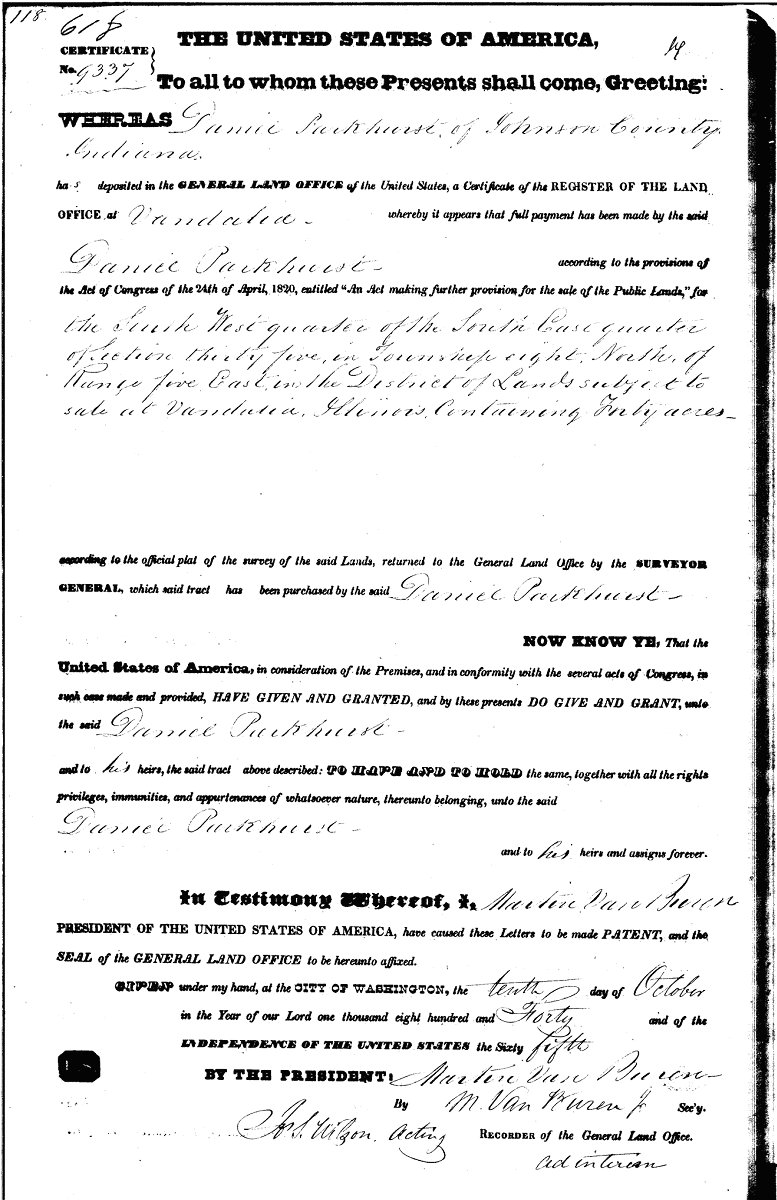 118
618
THE UNITED STATES OF AMERICA,
CERTIFICATE
No. 9337
To all to whom these Presents shall come, Greeting:
WHEREAS Daniel Parkhurst, of Johnson County,
Indiana.
has deposited in the GENERAL LAND OFFICE of the United States, a Certificate of the REGISTER OF THE LAND
OFFICE at Vandalia - whereby it appears that full payment has been made by the said
Daniel Parkhurst - according to the provisions of
the Act of Congress of the 24th of April, 1820, entitled "An Act making further provision for the sale of the Public Lands," for
the South West quarter of the South East quarter
of Section thirty five, in Township eight, North, of
Range five East in the District of Lands subject to
sale at Vandalia, Illinois, Containing Forty acres -
according to the official plat of the survey of the said Lands, returned to the General Land Office by the SURVEYOR
GENERAL, which said tract has been purchased by the said Daniel Parkhurst -
NOW KNOW YE, That the
United States of America, in consideration of the Premises, and in conformity with the several acts of Congress, in
such case made and provided, HAVE GIVEN AND GRANTED, and by these presents DO GIVE AND GRANT, unto
the said Daniel Parkhurst -
and to his heirs, the said tract above described: TO HAVE AND TO HOLD the same, together with all the rights
privileges, immunities, and appurtenances of whatsoever nature, thereunto belonging, unto the said
Daniel Parkhurst -
and to his heirs and assigns forever.
In Testimony Whereof, I, Martin Van Buren
PRESIDENT OF THE UNITED STATES OF AMERICA, have caused these Letters to be made PATENT, and the
SEAL of the GENERAL LAND OFFICE to be hereunto affixed.
GIVEN under my hand, at the CITY OF WASHINGTON, the tenth day of October
in the Year of our Lord one thousand eight hundred and Forty and of the
INDEPENDENCE OF THE UNITED STATES the Sixty fifth
BY THE PRESIDENT: Martin Van Buren
By M. Van Buren Jr Sec'y.
Jos. S. Wilson, Acting RECORDER of the General Land Office.
ad interim